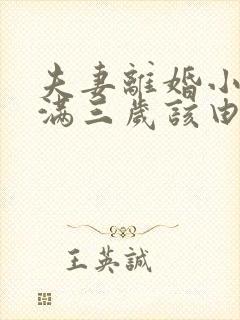 夫妻離婚小
满三歲該由
王英誠